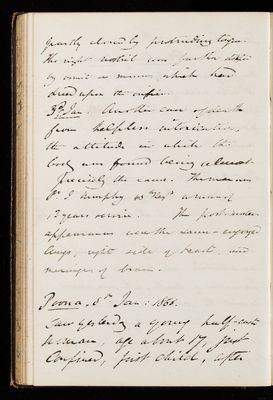 partly closed by protruding tongue.
The right nostril was further
by vomit or mucus, which had
dried upon the
3rd Jan. Another case of death
from helpless intoxication,
the attitude in which the
body was found being almost
precisely the same. The man was
Pt. J. Murphy Regt. a man of
13 years service. The post-mortem
appearances were the same - engorged
lungs, right side of heart, and
meninges of brain.
Poona. 5th Jan: 1860.
Saw yesterday a young half-caste
woman, age about 17, just
confined, first child, after